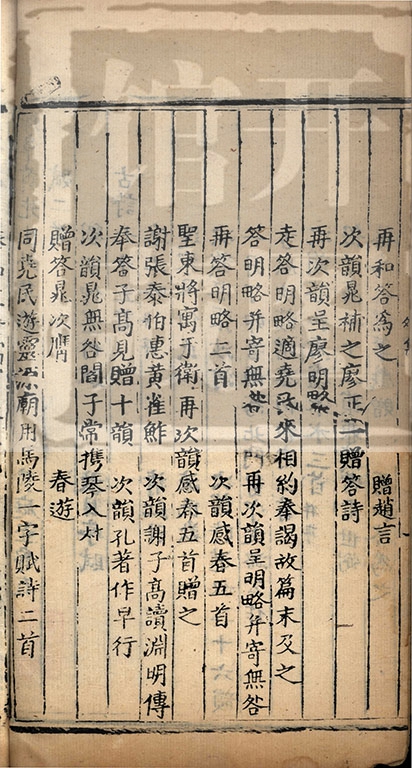 馆开
再和答為之　贈趙言
次韻晁補之廖正一贈答詩
再次韻呈廖明略
走答明略適堯民來相約奉謁故篇末及之
答明略并寄無咎　再次韻呈明略并寄無咎
再答明略二首　次韻感春五首
聖東將寓于衛再次韻感春五首贈之
謝張泰伯惠黃雀鮓　次韻謝子高讀淵明傳
奉答子高見贈十韻　次韻孔著作早行
次韻晁無咎閻子常携琴入村
贈答晁次膺　春遊
同堯民遊靈源廟用馬陵一字賦詩二首